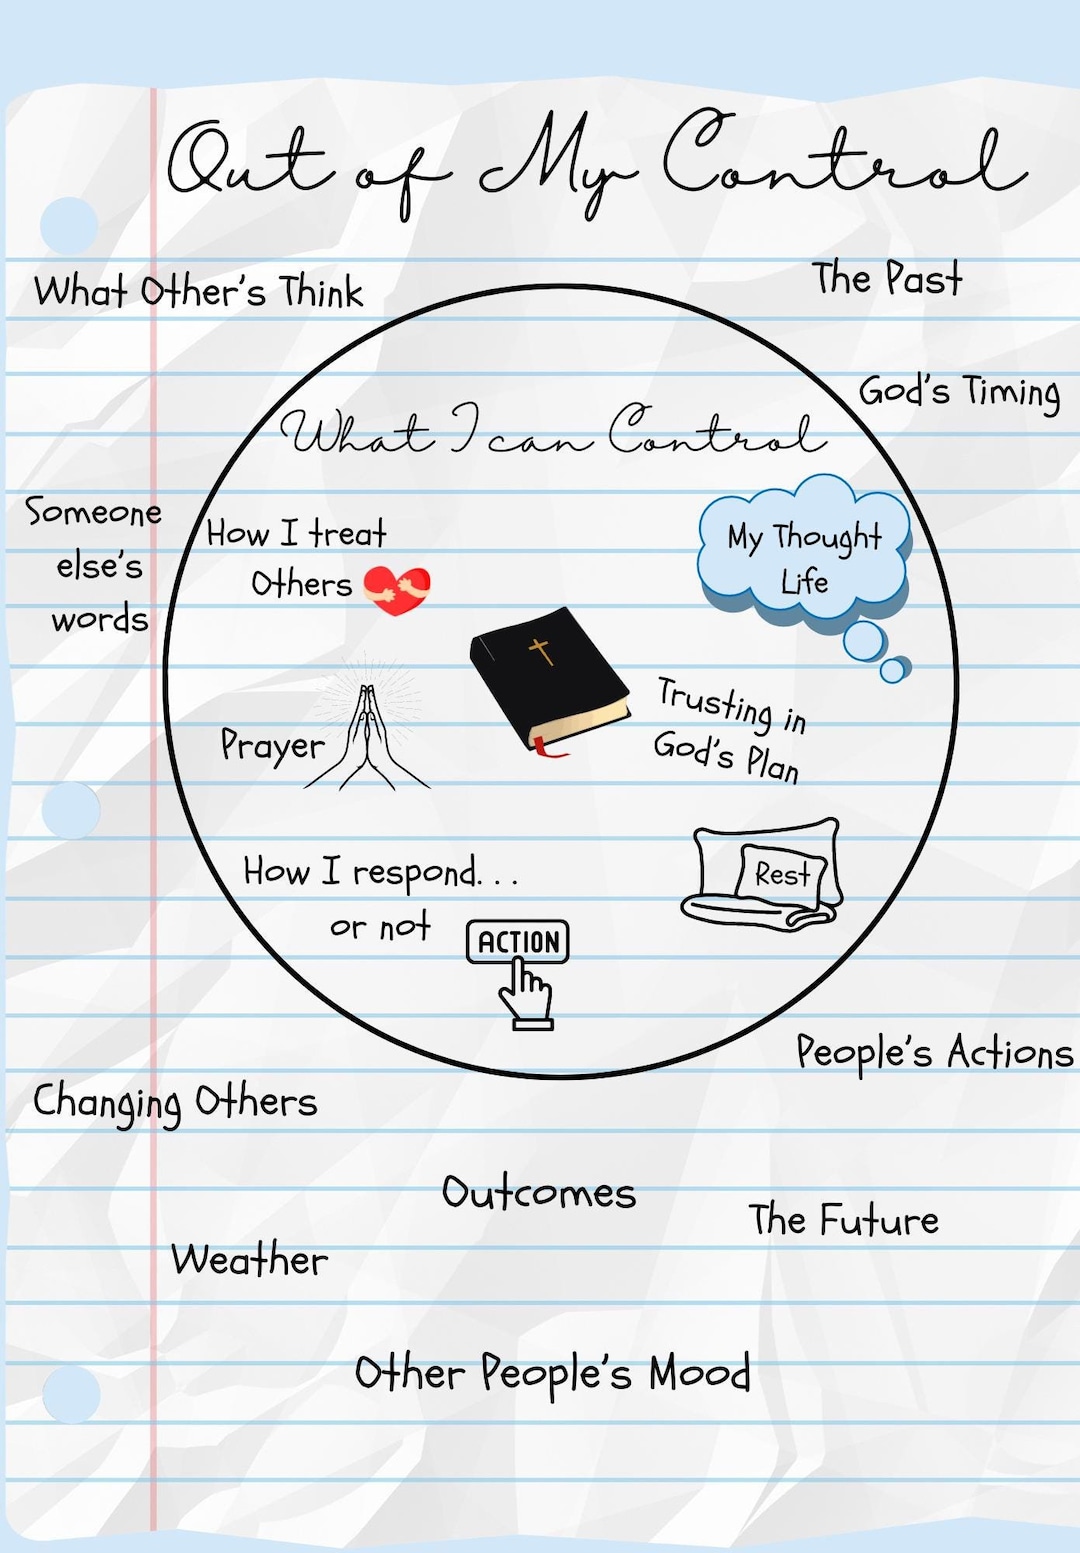 Out of My Control
What Other's Think
The Past
God's Timing
What I can Control
Someone
else's
words
How I treat
Others
My Thought
Life
Trusting in
God's Plan
Prayer
How I respond. . .
or not
ACTION
Rest
People's Actions
Changing Others
Outcomes
The Future
Weather
Other People's Mood